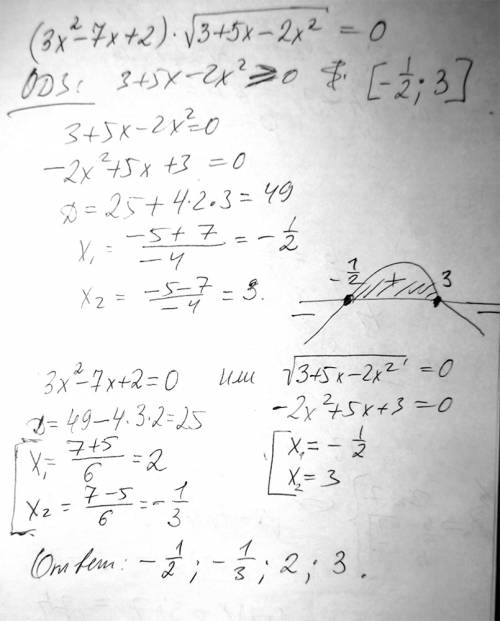 (3x²-7x+2)·√(3+5x-2x²) = 0
ОДЗ: 3+5x-2x² ≥ 0 [-1/2; 3]
3+5x-2x²=0
-2x²+5x+3=0
Д=25+4·2·3=49
x₁ = (-5+7)/(-4) = -1/2
x₂ = (-5-7)/(-4) = 3.
- -1/2 + 3 -
3x²-7x+2=0 или √(3+5x-2x²) = 0
Д=49-4·3·2=25 -2x²+5x+3=0
x₁=(7+5)/6=2 x₁=-1/2
x₂=(7-5)/6=-1/3 x₂=3
Ответ: -1/2; -1/3; 2; 3.